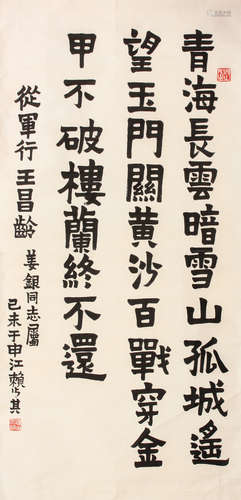 青海長雲暗雪山孤城遙
望玉門關黃沙百戰穿金
甲不破樓蘭終不還
從軍行王昌齡
姜銀同志屬
己未于申江賴少其